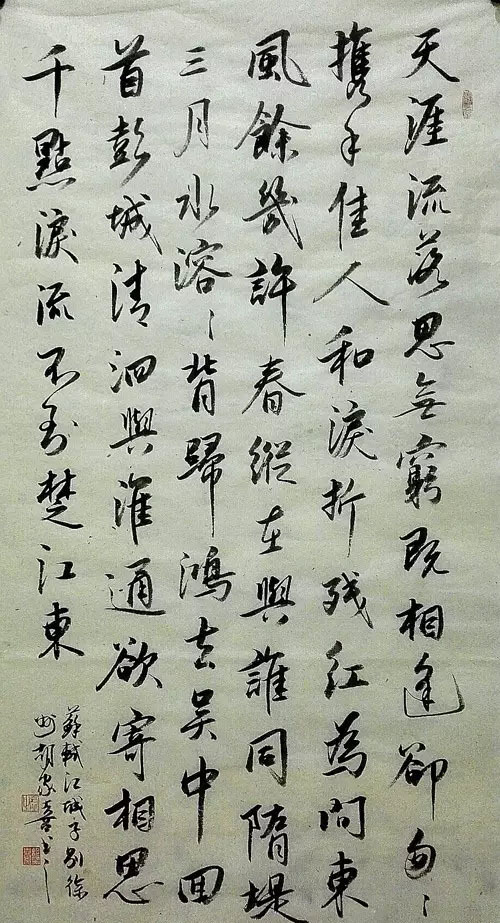 天涯流落思無窮既相逢卻匆〻
攜手佳人和淚折残紅為問東
風餘幾許春縱在與誰同隋堤
三月水溶〻背歸鴻去吳中回
首彭城清泗與淮通欲寄相思
千點淚流不到楚江東
蘇軾江城子別徐
州胡家喜书